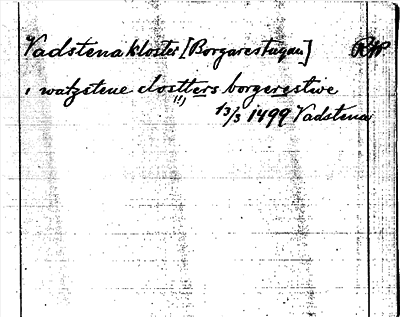 Vadstena kloster [Borgarestugan] RAP
i watzstene clostters borgerestwe
(!)
13/3 1499 Vadstena